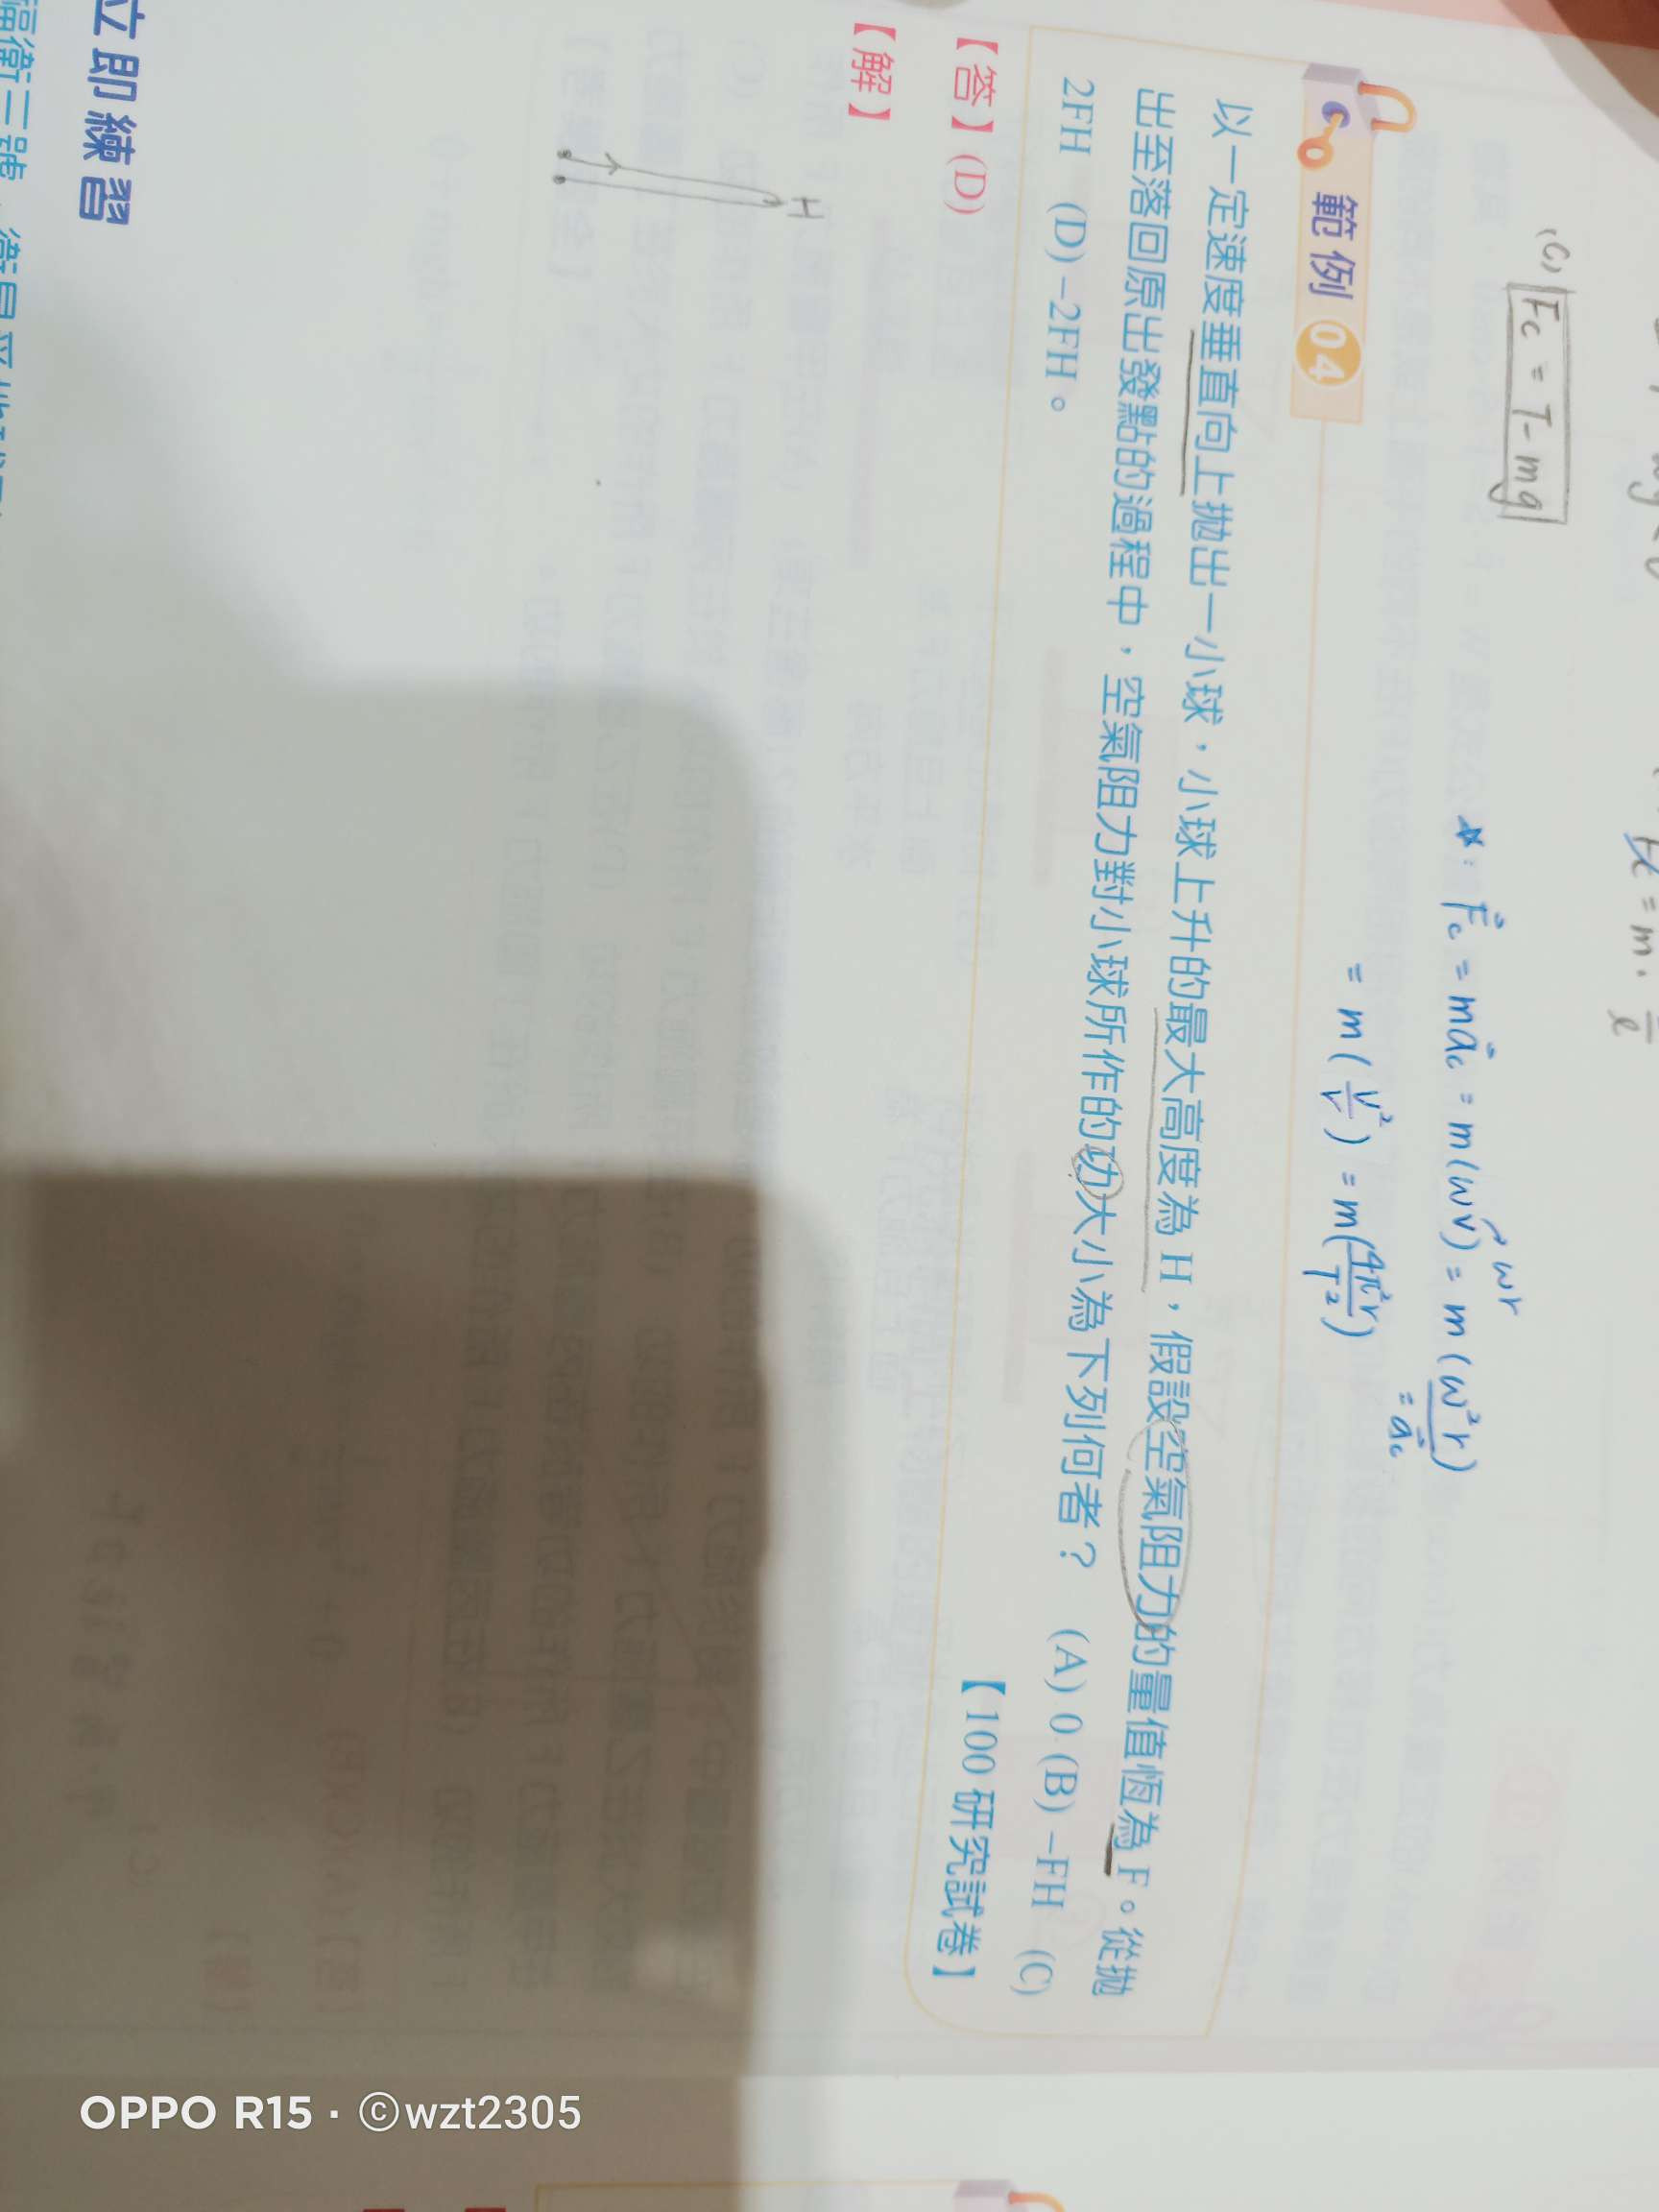 (C) Fc = T - mg
*: Fc = mac = m(ωv) = m(ω²r)
ωr
= ac
= m(v²/r) = m(4π²r/T²)
範例 04
以一定速度垂直向上拋出一小球，小球上升的最大高度為 H，假設空氣阻力的量值恆為 F。從拋
出至落回原出發點的過程中，空氣阻力對小球所作的功大小為下列何者？ (A) 0 (B) –FH (C)
2FH (D) –2FH。
【100 研究試卷】
【答】(D)
【解】
H
立即練習
OPPO R15 · ©wzt2305